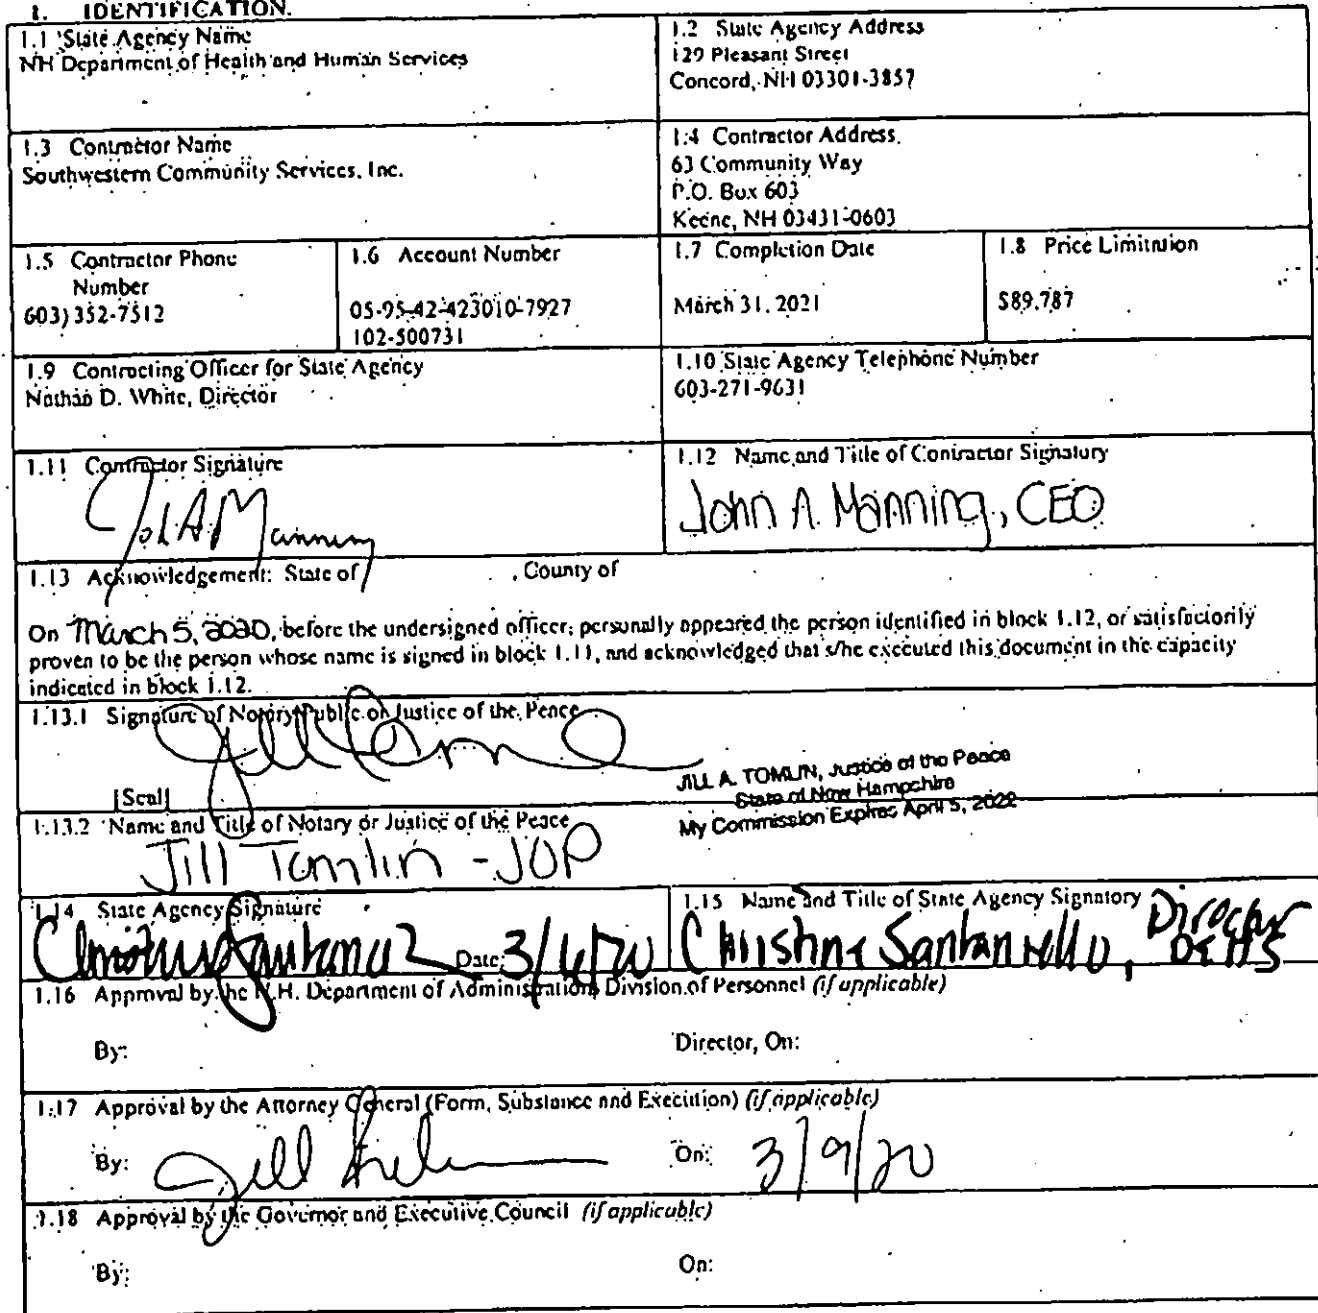 1. IDENTIFICATION.
1.1 State Agency Name
NH Department of Health and Human Services
1.2 State Agency Address
129 Pleasant Street
Concord, NH 03301-3857
1.3 Contractor Name
Southwestern Community Services, Inc.
1.4 Contractor Address
63 Community Way
P.O. Box 603
Keene, NH 03431-0603
1.5 Contractor Phone
Number
603) 352-7512
1.6 Account Number
05-95-42-423010-7927
102-500731
1.7 Completion Date
March 31, 2021
1.8 Price Limitation
$89,787
1.9 Contracting Officer for State Agency
Nathan D. White, Director
1.10 State Agency Telephone Number
603-271-9631
1.11 Contractor Signature
1.12 Name and Title of Contractor Signatory
John A. Manning, CEO
1.13 Acknowledgement: State of , County of
On March 5, 2020, before the undersigned officer, personally appeared the person identified in block 1.12, or satisfactorily
proven to be the person whose name is signed in block 1.11, and acknowledged that s/he executed this document in the capacity
indicated in block 1.12.
1.13.1 Signature of Notary Public or Justice of the Peace
JILL A. TOMLIN, Justice of the Peace
State of New Hampshire
My Commission Expires April 5, 2022
[Seal]
1.13.2 Name and Title of Notary or Justice of the Peace
Jill Tomlin - JOP
1.14 State Agency Signature
Date: 3/6/20
1.15 Name and Title of State Agency Signatory
Christine Santaniello, Director
DEHS
1.16 Approval by the N.H. Department of Administration, Division of Personnel (if applicable)
By: Director, On:
1.17 Approval by the Attorney General (Form, Substance and Execution) (if applicable)
By: On: 3/9/20
1.18 Approval by the Governor and Executive Council (if applicable)
By: On: